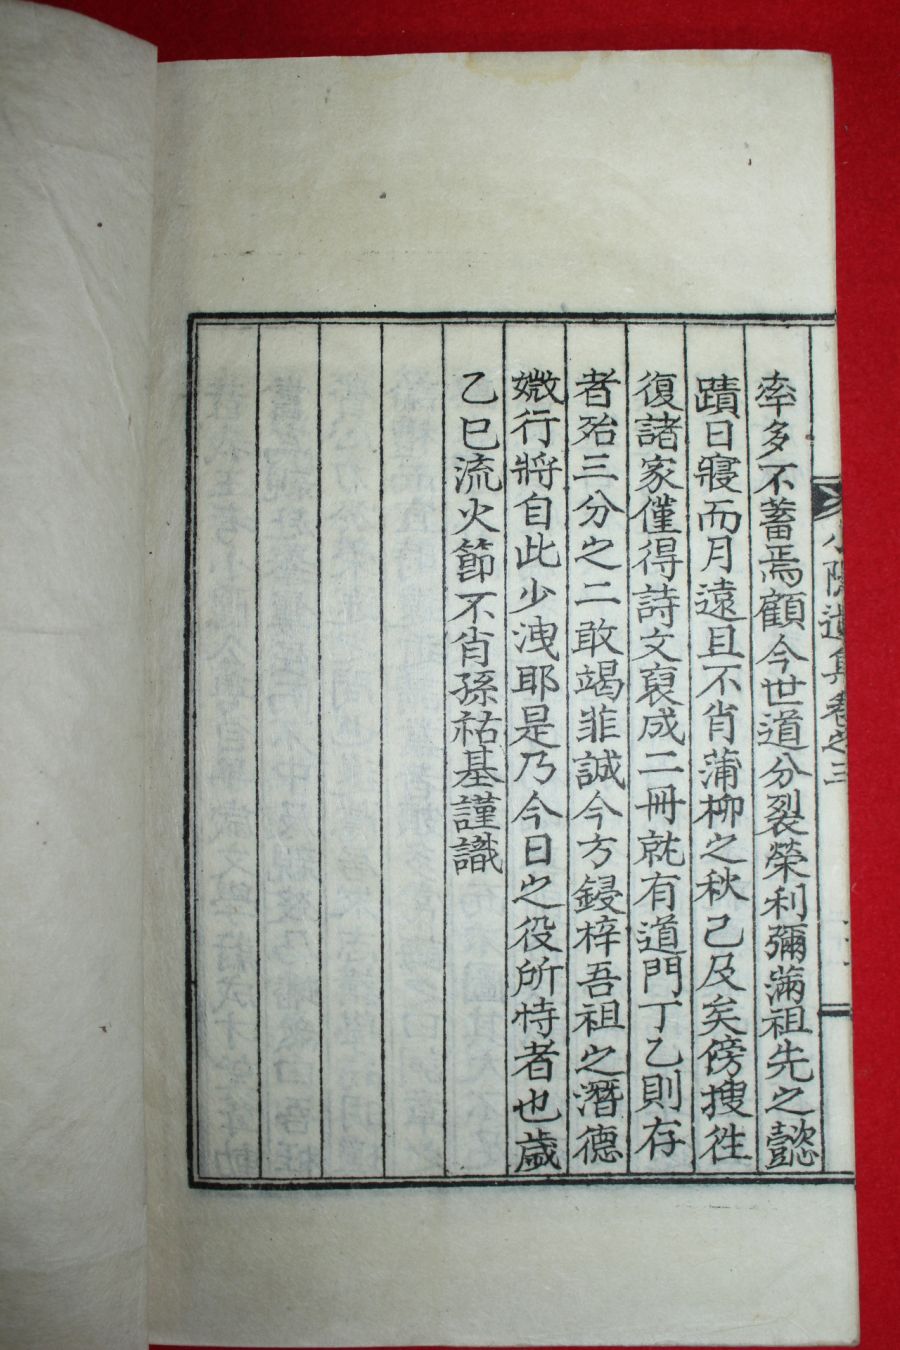 小隱遺集卷之三
牽多不蓄焉顧今世道分裂榮利彌滿祖先之懿
蹟日寢而月遠且不肖蒲柳之秋己及矣傍搜徃
復諸家僅得詩文裒成二冊就有道門丁乙則存
者殆三分之二敢竭菲誠今方鋟梓吾祖之潛德
媺行將自此少洩耶是乃今日之役所恃者也歲
乙巳流火節不肖孫祐基謹識